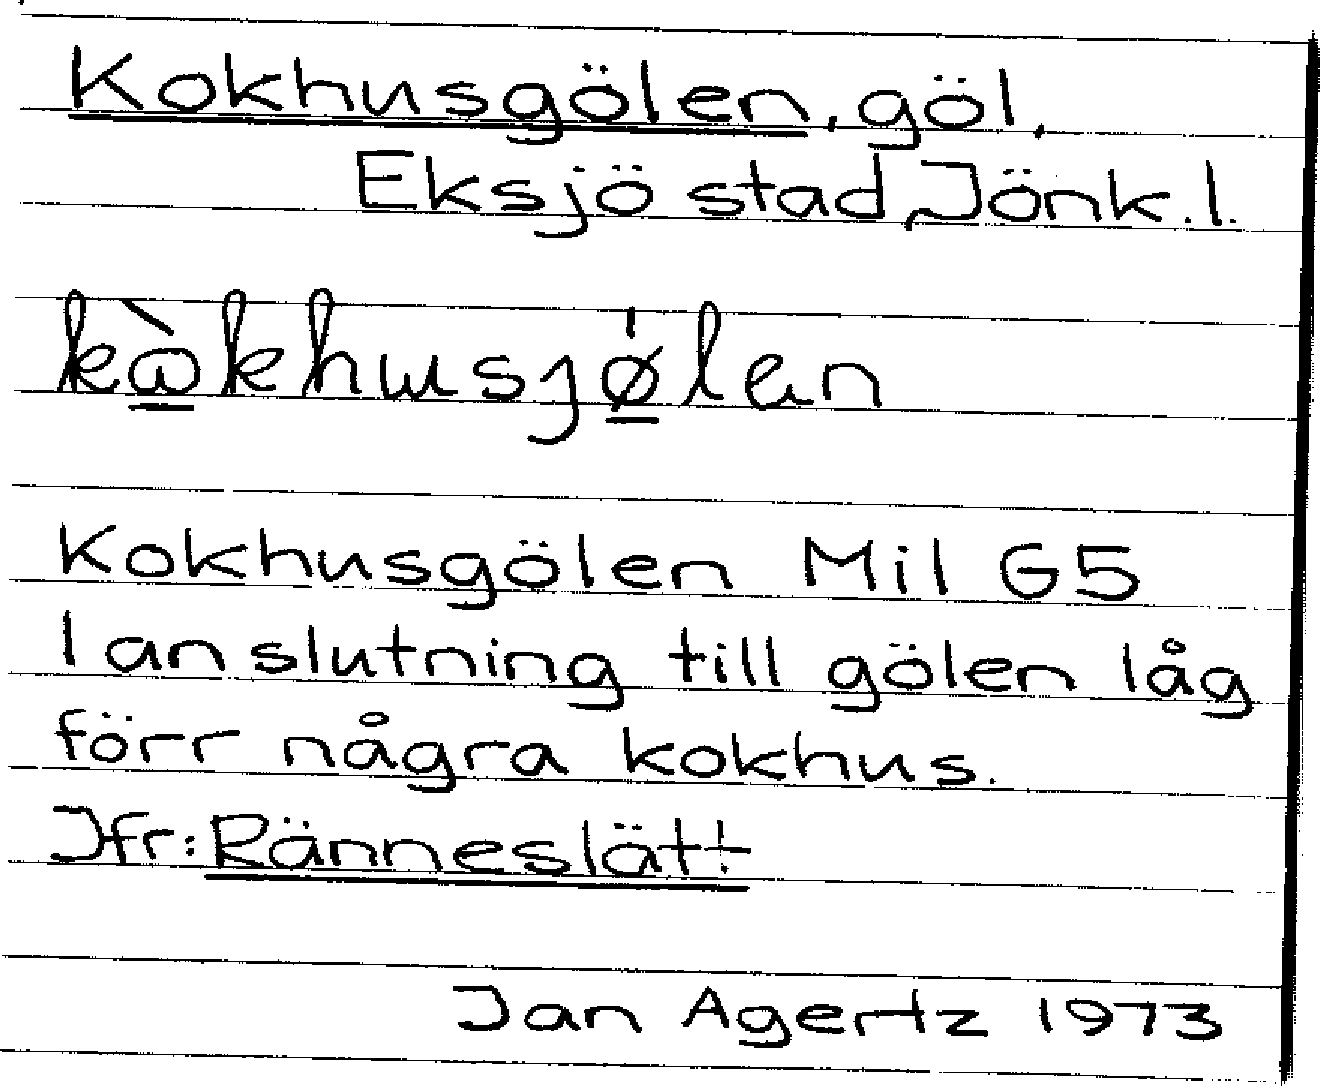 Kokhusgölen, göl,
Eksjö stad, Jönk.l.
kὼkhɯsjǿlən
Kokhusgölen Mil G5
I anslutning till gölen låg
förr några kokhus.
Jfr: Ränneslätt
Jan Agertz 1973